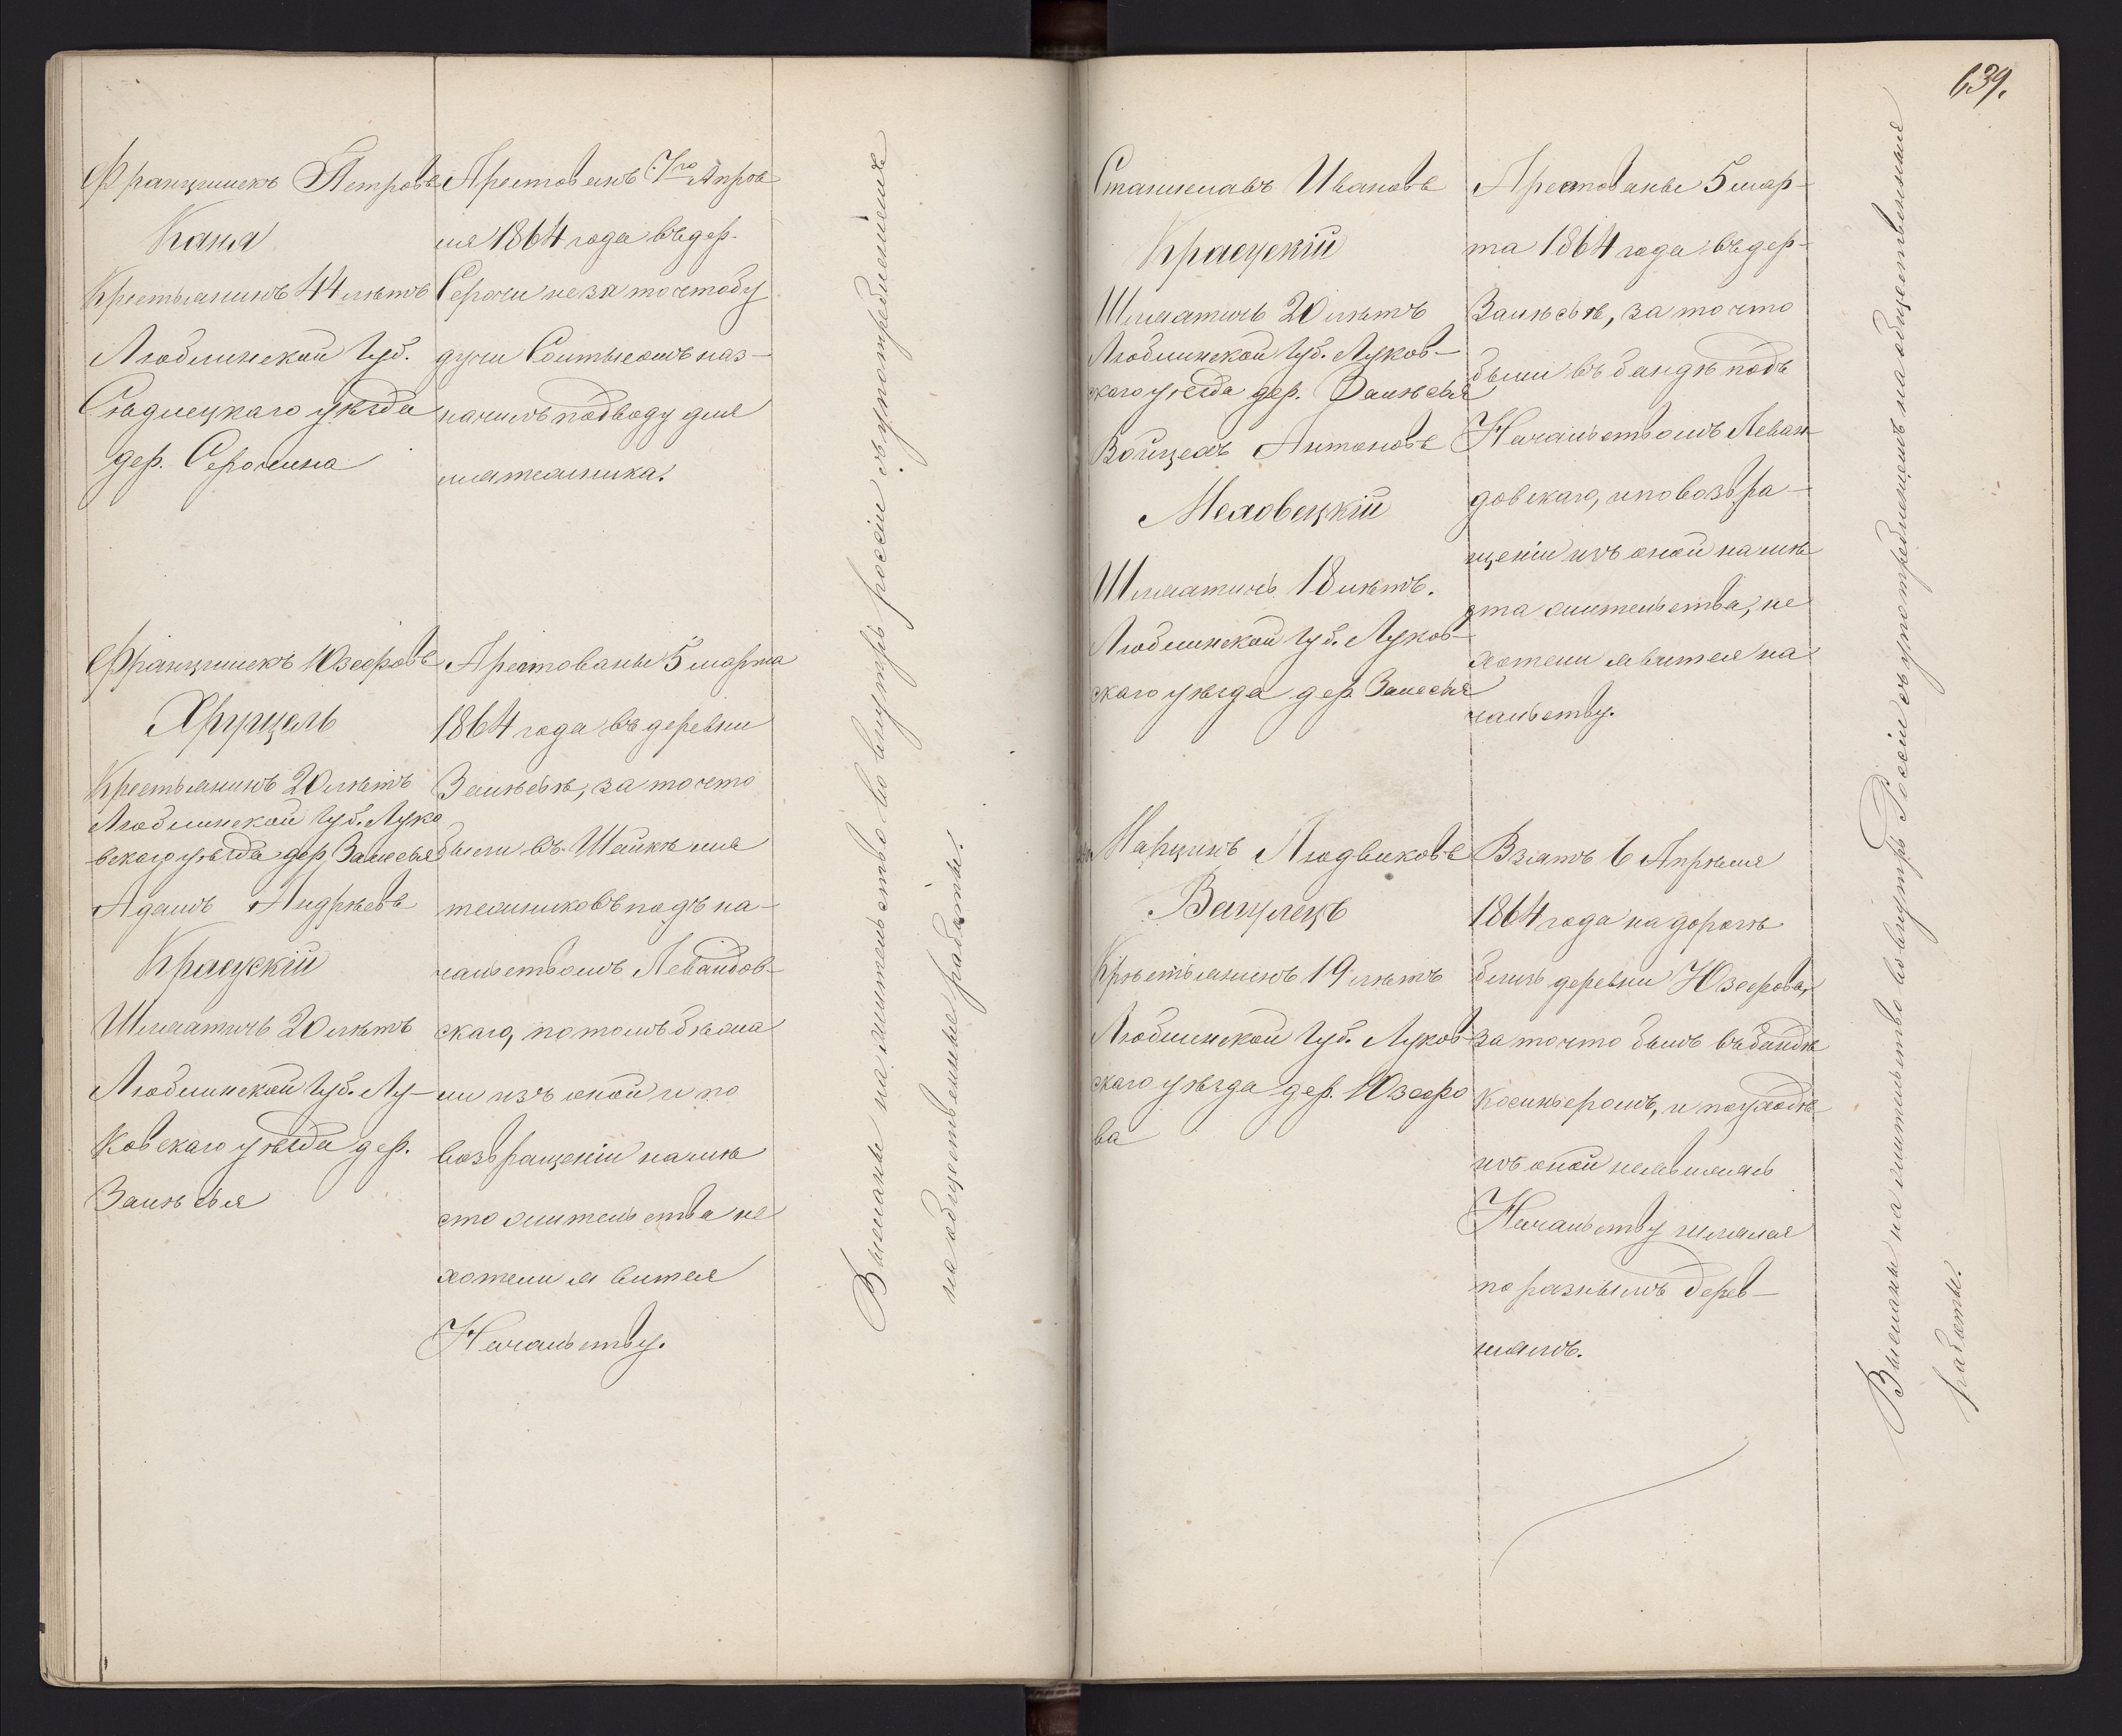 Францишекъ Петровъ
Каня
Крестьянинъ 44 лѣтъ
Люблинской Губ.
Сѣдлецкаго уѣзда
дер. Серочина
Арестованъ 7го Апрѣ
ля 1864 года въ дер.
за то что бу
дучи Солтысомъ наз-
начилъ подводу для
мятежника.
Францишекъ Юзефовъ
Хрущель
Крестьянинъ 20 лѣтъ
Люблинской Губ. Луко
вскаго уѣзда дер. Залесья
Адамъ Андрѣевъ
Красускій
Шляхтичъ 20 лѣтъ
Люблинской Губ. Лу-
ковскаго уѣзда дер.
Залѣсья
Арестованы 5 марта
1864 года въ деревни
Залѣсьѣ, за то что
были въ Шайкѣ мя
тежниковъ подъ на-
чальствомъ Левандов-
скаго, потомъ бѣжа
ли изъ оной и по
возвращеніи на мѣ
сто жительства не
хотели явится
Начальству.
Высланы на жительство во внутрь россіи съ употребленіемъ
на общественные работы.
639.
Станиславъ Ивановъ
Красускій
Шляхтичъ 20 лѣтъ
Люблинской Губ. Луков-
скаго уѣзда дер. Залѣсья
Войцехъ Антоновъ
Меховецкій
Шляхтичъ 18 лѣтъ.
Люблинской Губ. Луков-
скаго уѣзда дер. Залесья
Арестованы 5 мар-
та 1864 года въ дер-
Залѣсьѣ, за то что
были въ бандѣ подъ
Начальствомъ Леван-
довскаго, и по возвра-
щеніи изъ оной на мѣ
ста жительства, не
хотели явится на
чальству.
Марцинъ Людвиковъ
Вацлецъ
Крѣстьянинъ 19 лѣтъ
Люблинской Губ. Луков-
скаго уѣзда дер. Юзефо
ва
Взятъ 6 Апрѣля
1864 года на дорогѣ
близъ деревни Юзефова,
за то что былъ въ бандѣ
Косиньеромъ, и по уходѣ
изъ оной неявлялась
Начальству шляясь
по разнымъ дерев-
нямъ.
Высланы на жительство во внутрь Россіи съ употребленіемъ на общественныя
работы.